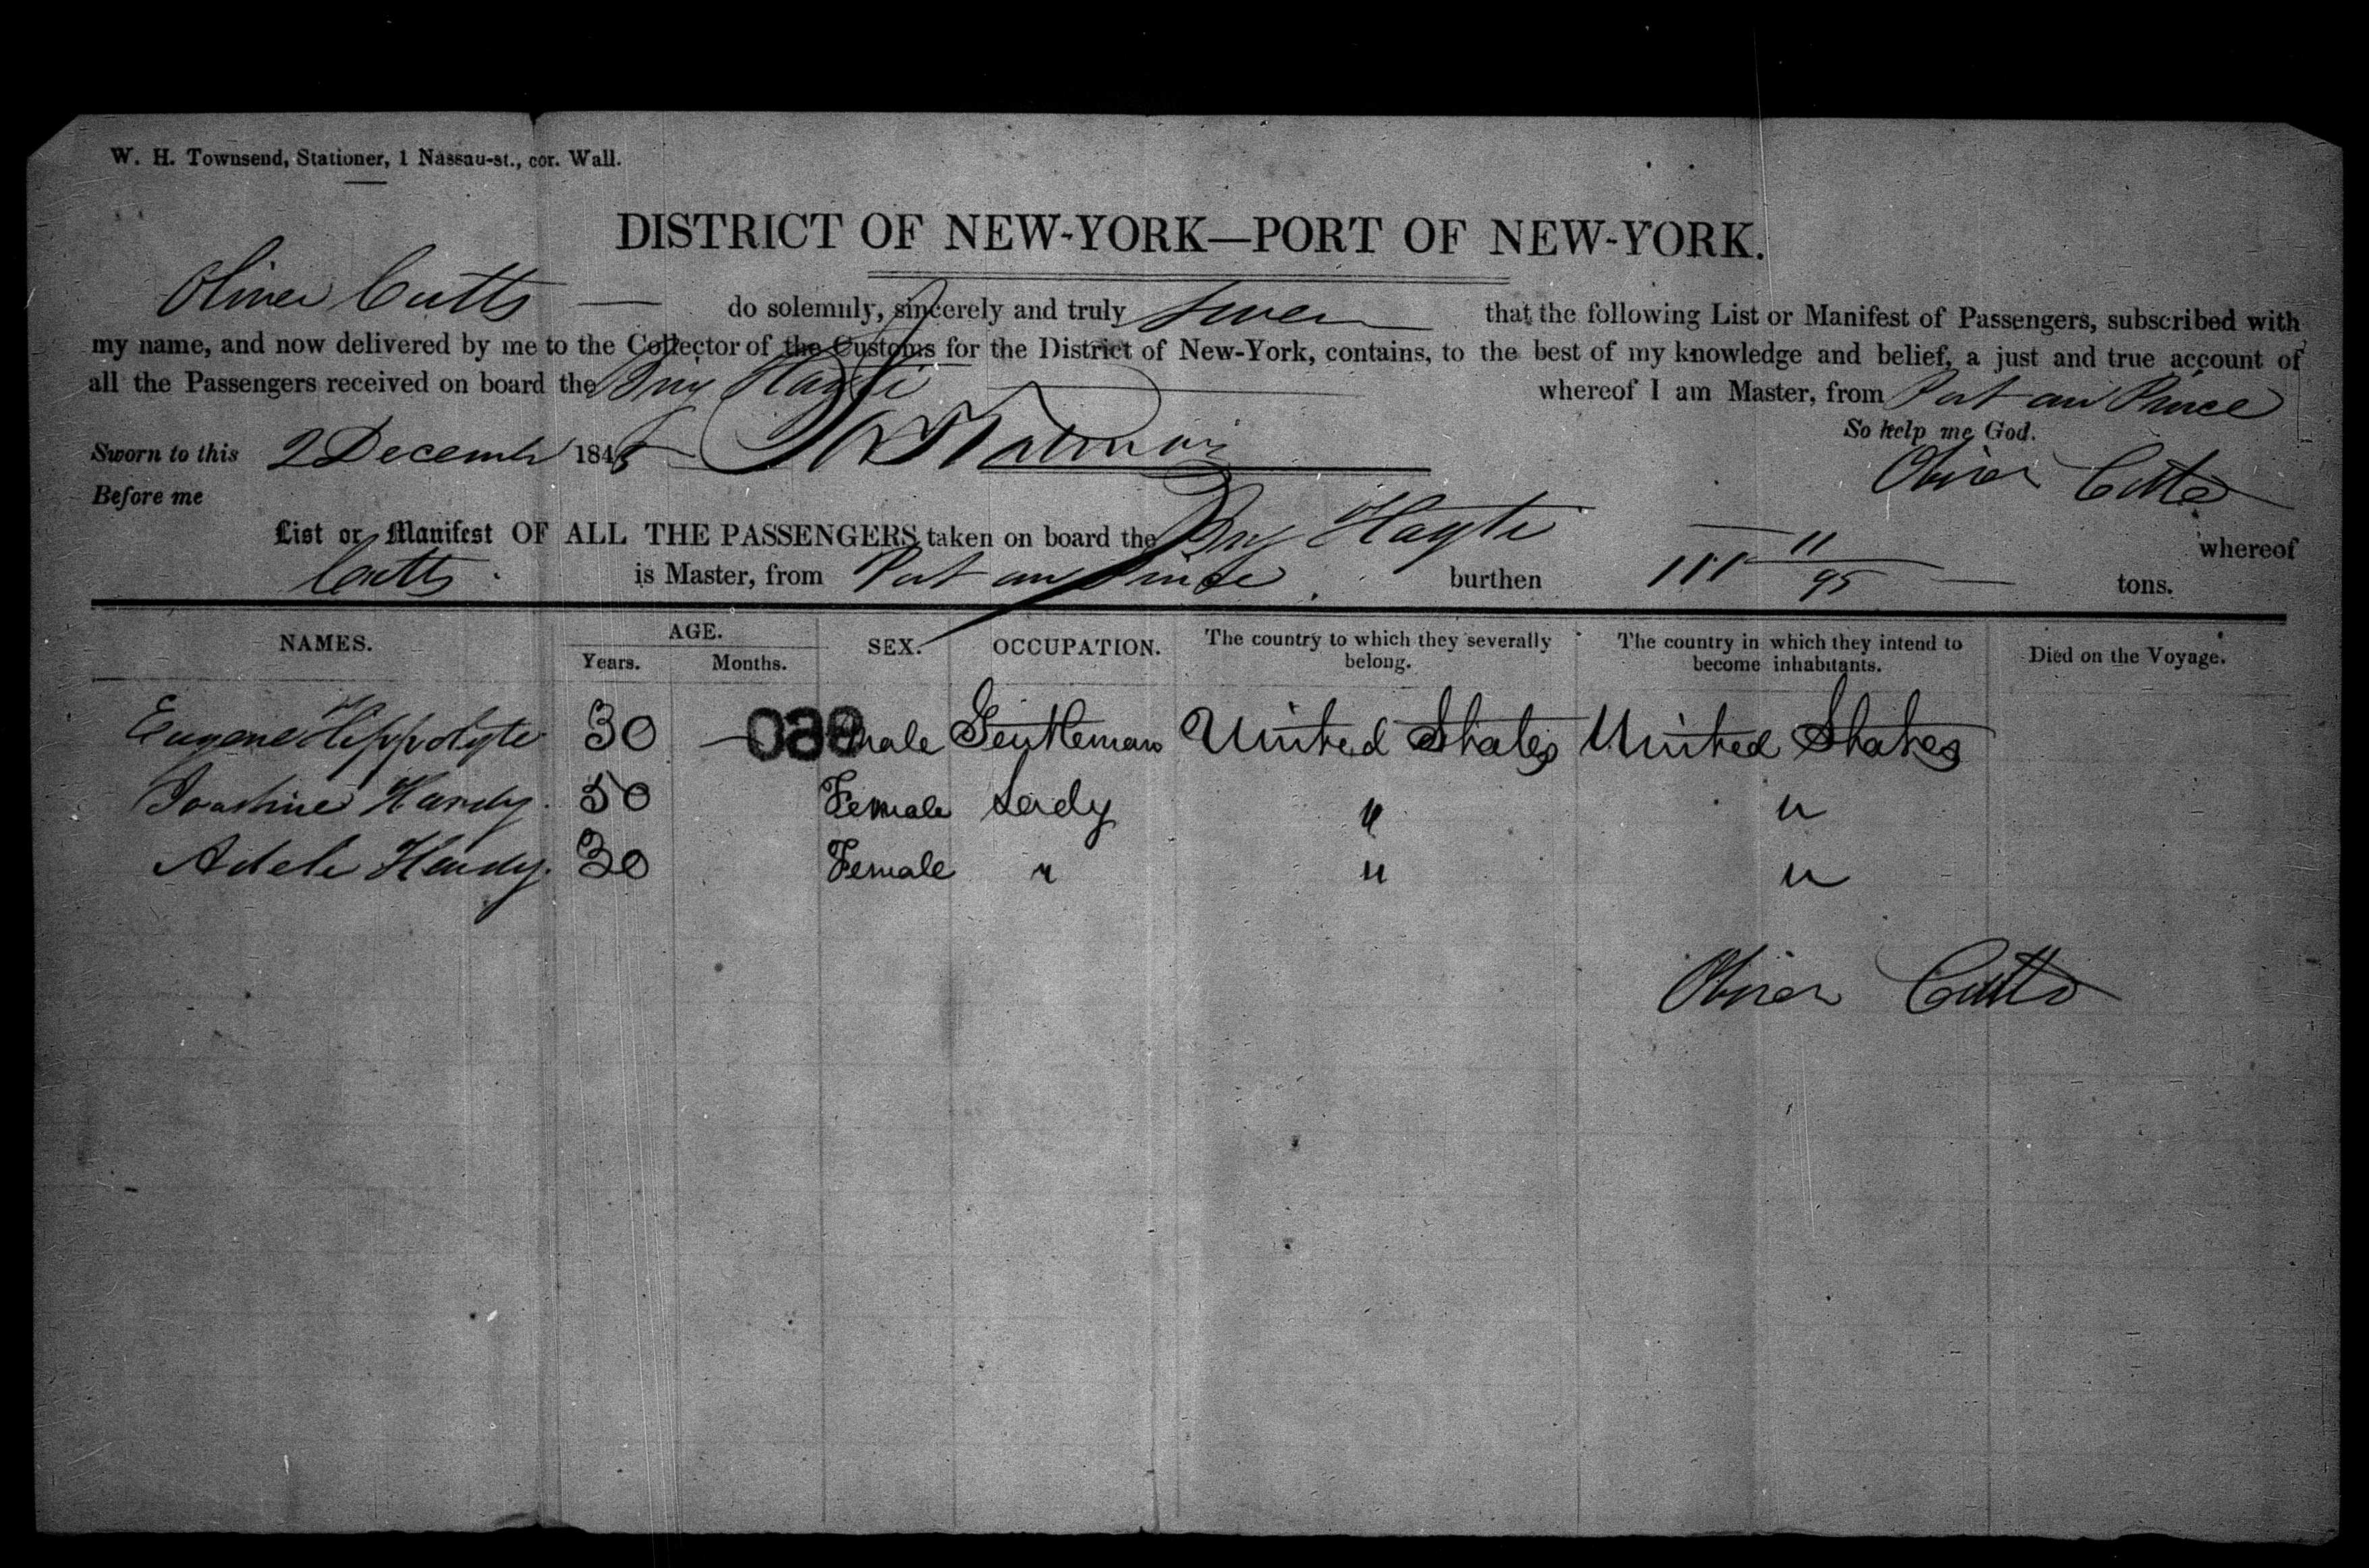 W. H. Townsend, Stationer, 1 Nassau-st., cor. Wall.
DISTRICT OF NEW-YORK—PORT OF NEW-YORK.
Oliver Cutts — do solemnly, sincerely and truly swear that the following List or Manifest of Passengers, subscribed with
my name, and now delivered by me to the Collector of the Customs for the District of New-York, contains, to the best of my knowledge and belief, a just and true account of
all the Passengers received on board the Brig Hayti whereof I am Master, from Port au Prince
So help me God.
Sworn to this 2 December 184
Oliver Cutts
Before me
List or Manifest OF ALL THE PASSENGERS taken on board the Brig Hayti whereof
Cutts is Master, from Port au Prince burthen 111 11/95 tons.
NAMES. AGE. SEX. OCCUPATION. The country to which they severally belong. The country in which they intend to become inhabitants. Died on the Voyage.
Years. Months.
Eugene Hippolyte 30 — 089 male Gentleman United States United States
Hardy. 50 Female Lady " "
Adele Hardy. 30 Female " " "
Oliver Cutts